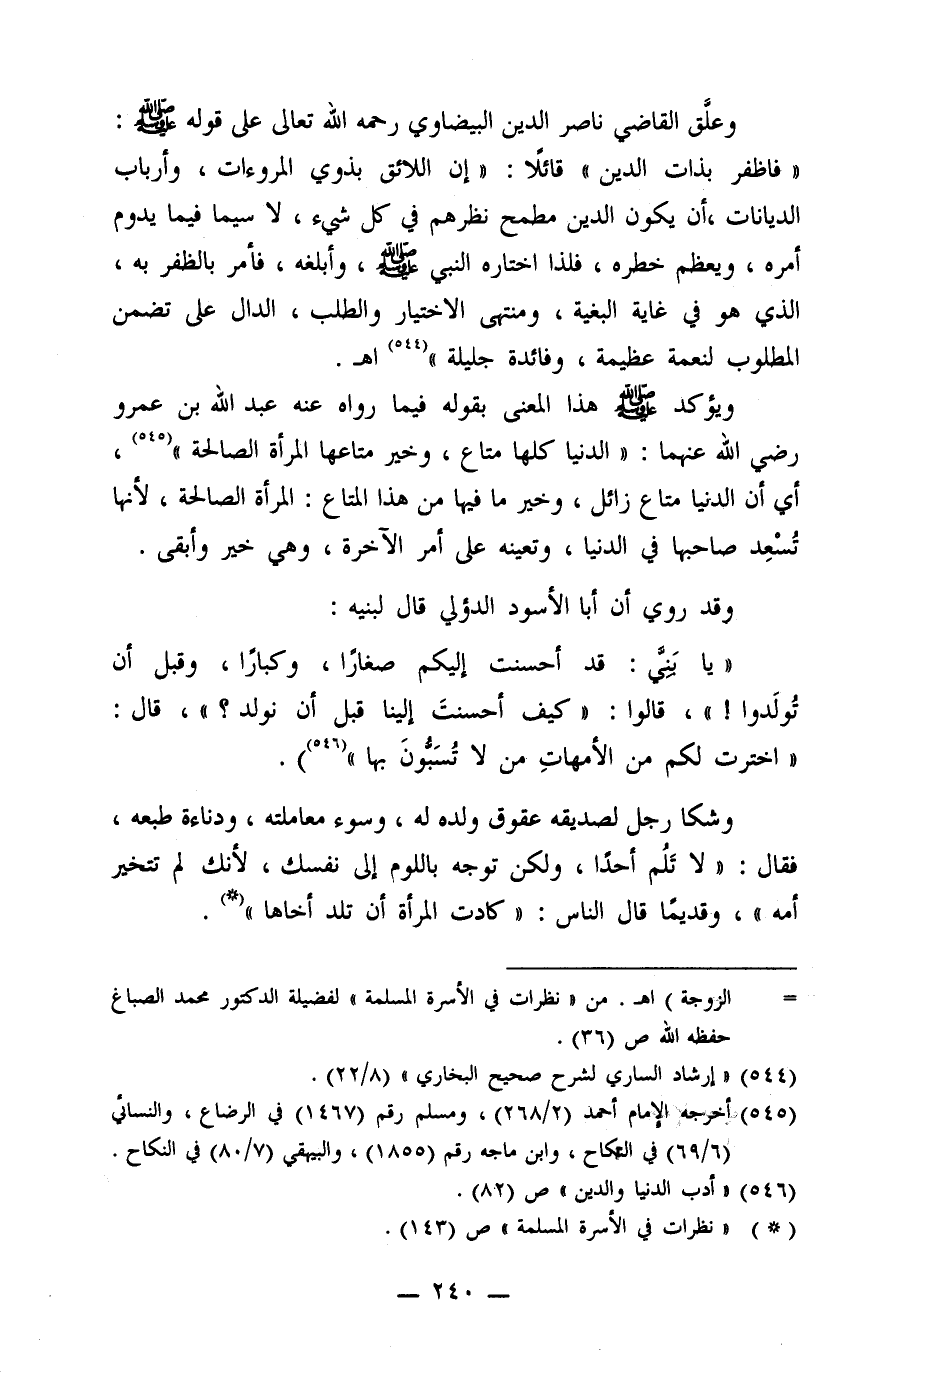 وعلَّق القاضي ناصر الدين البيضاوي رحمه الله تعالى على قوله ﷺ :
« فاظفر بذات الدين » قائلًا : « إن اللائق بذوي المروءات ، وأرباب
الديانات ،أن يكون الدين مطمح نظرهم في كل شيء ، لا سيما فيما يدوم
أمره ، ويعظم خطره ، فلذا اختاره النبي ﷺ ، وأبلغه ، فأمر بالظفر به ،
الذي هو في غاية البغية ، ومنتهى الاختيار والطلب ، الدال على تضمن
المطلوب لنعمة عظيمة ، وفائدة جليلة »(٥٤٤) اهـ .
ويؤكد ﷺ هذا المعنى بقوله فيما رواه عنه عبد الله بن عمرو
رضي الله عنهما : « الدنيا كلها متاع ، وخير متاعها المرأة الصالحة »(٥٤٥) ،
أي أن الدنيا متاع زائل ، وخير ما فيها من هذا المتاع : المرأة الصالحة ، لأنها
تُسْعِد صاحبها في الدنيا ، وتعينه على أمر الآخرة ، وهي خير وأبقى .
وقد روي أن أبا الأسود الدؤلي قال لبنيه :
« يا بَنِيَّ : قد أحسنت إليكم صغارًا ، وكبارًا ، وقبل أن
تُولَدوا ! » ، قالوا : « كيف أحسنتَ إلينا قبل أن نولد ؟ » ، قال :
« اخترت لكم من الأمهاتِ من لا تُسَبُّونَ بها »(٥٤٦)) .
وشكا رجل لصديقه عقوق ولده له ، وسوء معاملته ، ودناءة طبعه ،
فقال : « لا تَلُم أحدًا ، ولكن توجه باللوم إلى نفسك ، لأنك لم تتخير
أمه » ، وقديمًا قال الناس : « كادت المرأة أن تلد أخاها »(*) .
= الزوجة ) اهـ . من « نظرات في الأسرة المسلمة » لفضيلة الدكتور محمد الصباغ
حفظه الله ص (٣٦) .
(٥٤٤) « إرشاد الساري لشرح صحيح البخاري » (٢٢/٨) .
(٥٤٥) أخرجه الإمام أحمد (٢٦٨/٢) ، ومسلم رقم (١٤٦٧) في الرضاع ، والنسائي
(٦٩/٦) في النكاح ، وابن ماجه رقم (١٨٥٥) ، والبيهقي (٨٠/٧) في النكاح .
(٥٤٦) « أدب الدنيا والدين » ص (٨٢) .
(*) « نظرات في الأسرة المسلمة » ص (١٤٣) .
— ٢٤٠ —